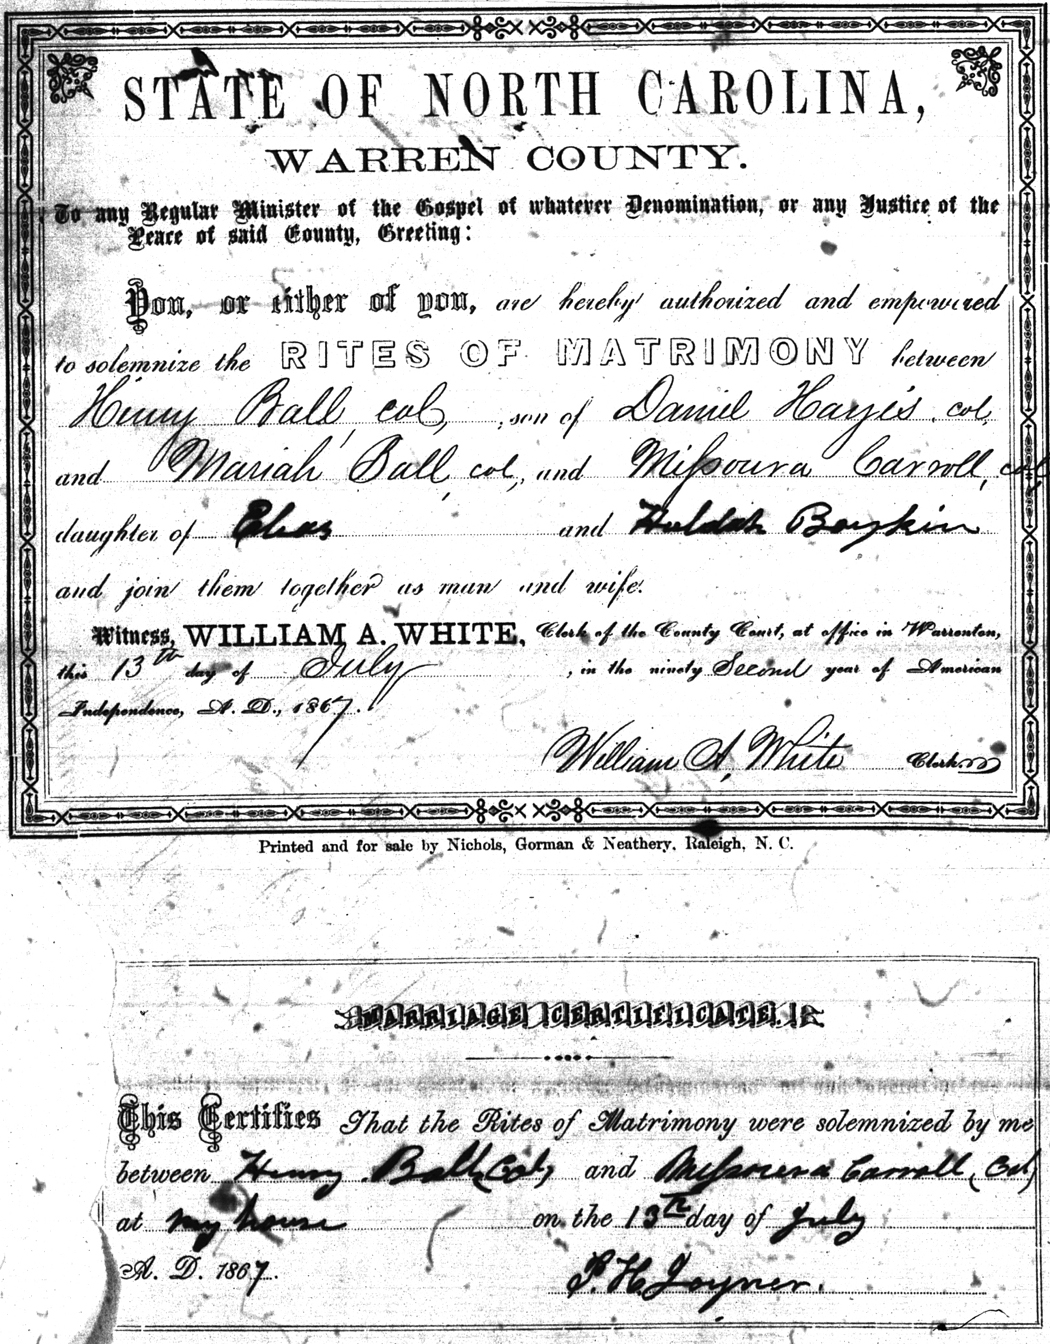 STATE OF NORTH CAROLINA,
WARREN COUNTY.
To any Regular Minister of the Gospel of whatever Denomination, or any Justice of the
Peace of said County, Greeting:
You, or either of you, are hereby authorized and empowered
to solemnize the RITES OF MATRIMONY between
Henry Ball, col, son of Daniel Hayes col,
and Mariah Ball, col, and Missoura Carroll, col,
daughter of and Huldah Boykin
and join them together as man and wife.
Witness, WILLIAM A. WHITE, Clerk of the County Court, at office in Warrenton,
this 13th day of July, in the ninety Second year of American
Independence, A. D., 1867.
William A. White Clerk
Printed and for sale by Nichols, Gorman & Neathery, Raleigh, N. C.
MARRIAGE CERTIFICATE.
This Certifies That the Rites of Matrimony were solemnized by me
between Henry Ball (Col) and Missoura Carroll (Col)
at my house on the 13th day of July
A. D. 1867. P. H. Joyner.